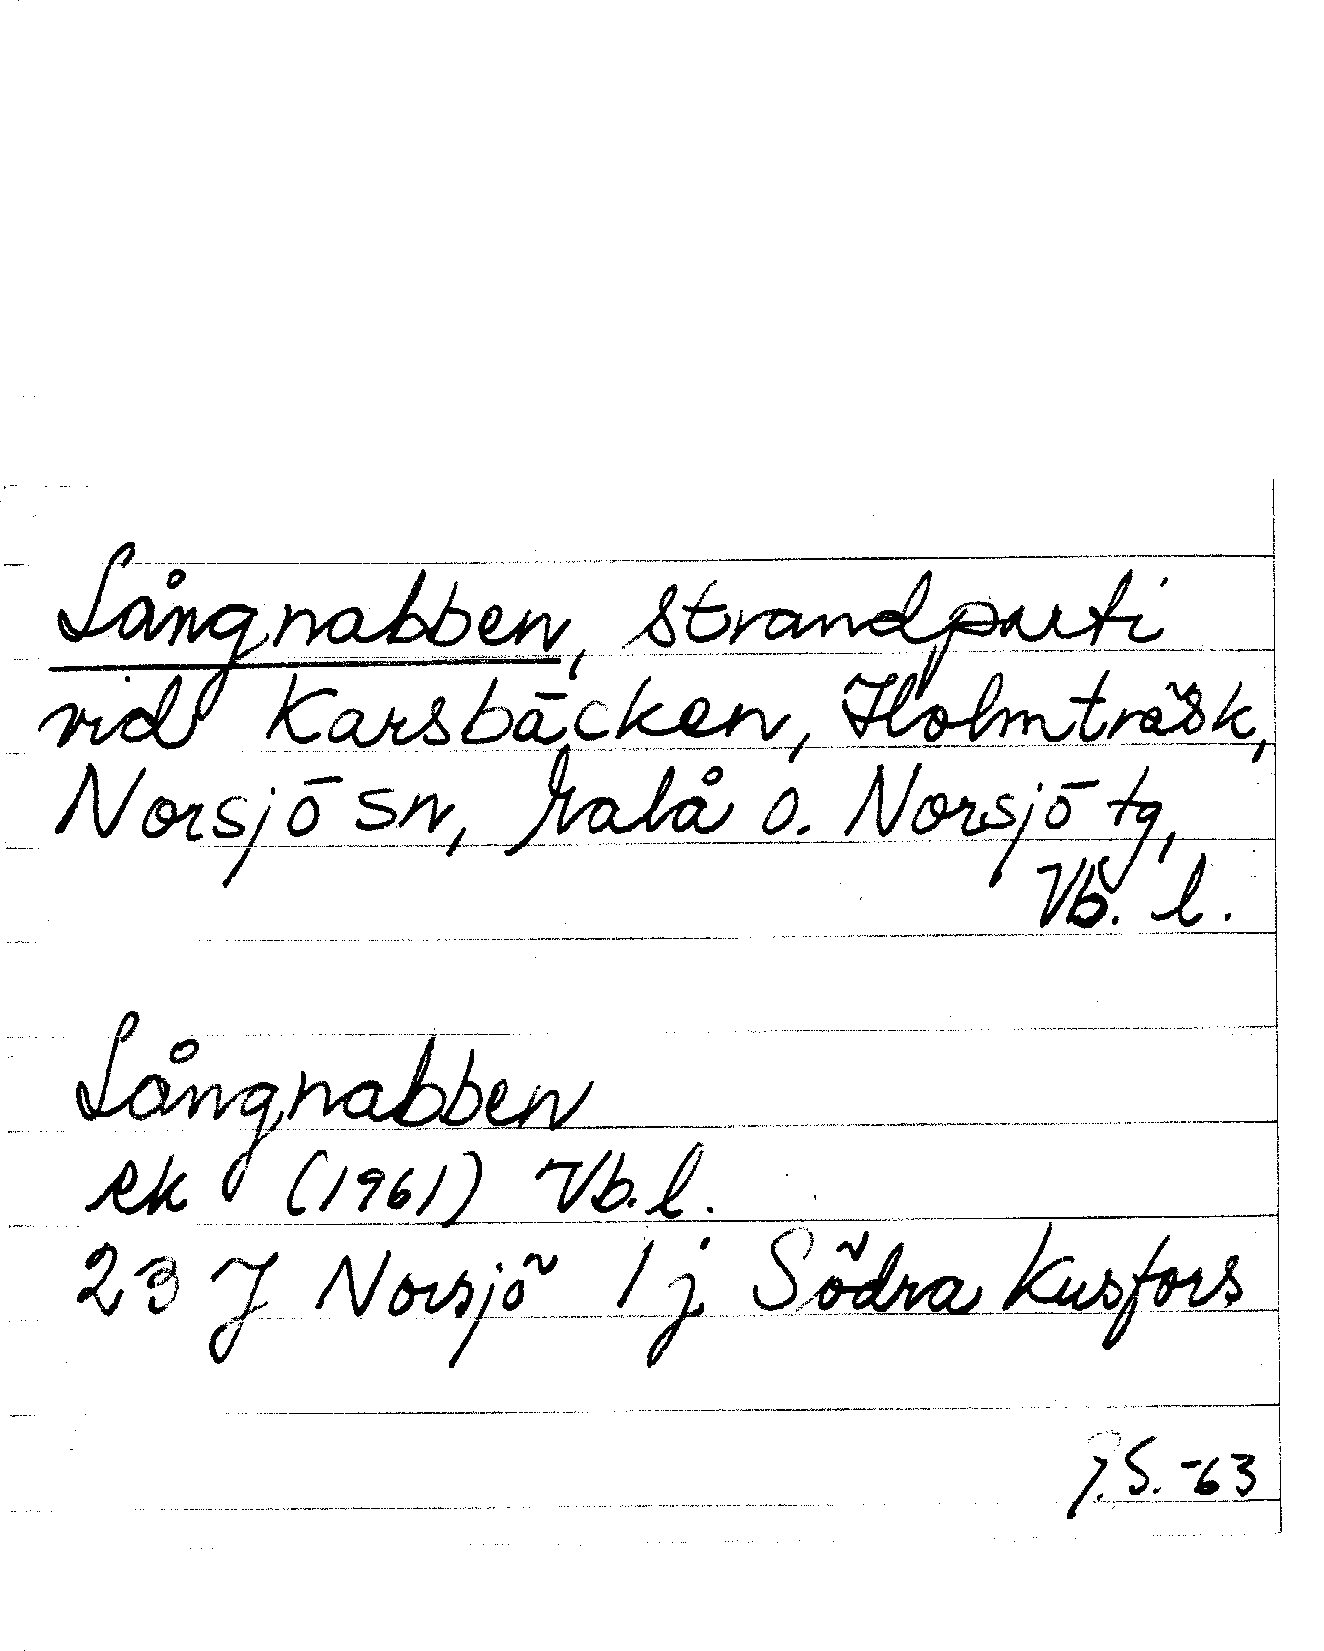 Långnabben, strandparti
vid Karsbäcken, Holmträsk,
Norsjö sn, Malå o. Norsjö tg,
Vb. l.
Långnabben
ek (1961) Vb. l.
23 J Norsjö 1 j Södra Kusfors
J.S. -63